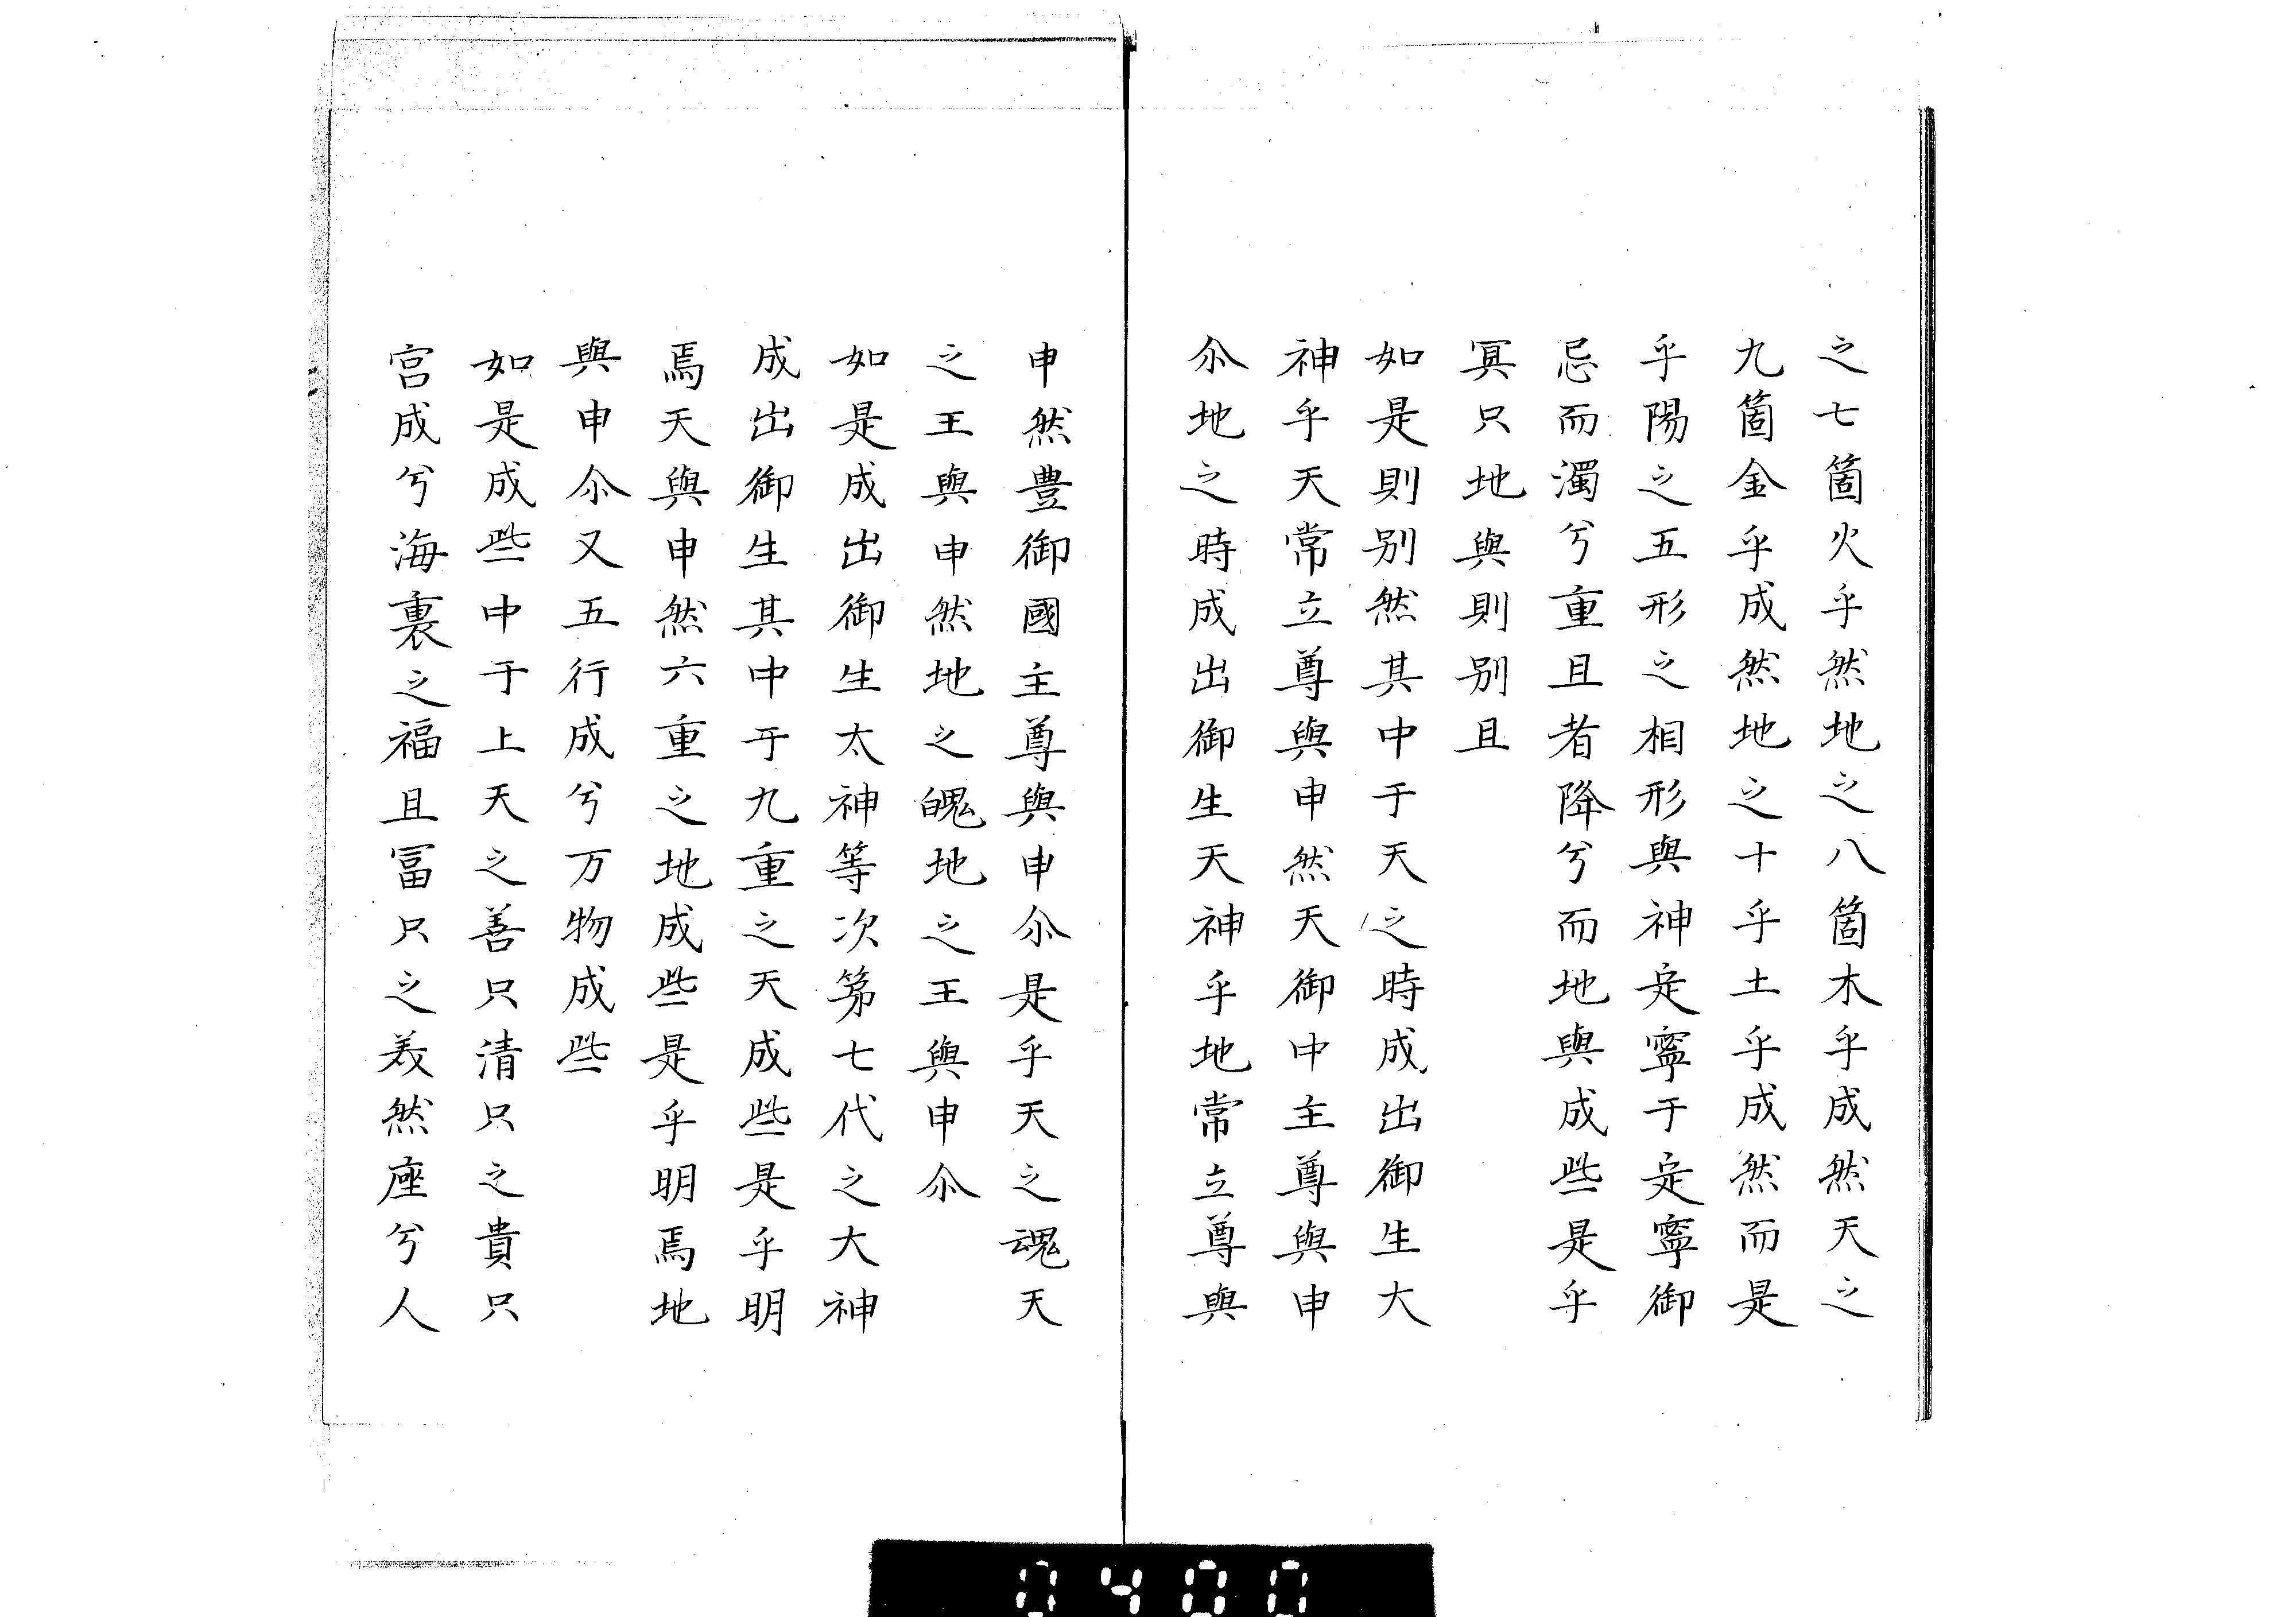 之七箇火乎然地之八箇木乎成然天之
九箇金乎成然地之十乎土乎成然而是
乎陽之五形之相形與神定寧于定寧御
忌而濁兮重且者降兮而地與成些是乎
冥只地與則別且
如是則別然其中于天之時成出御生大
神乎天常立尊與申然天御中主尊與申
尒地之時成出御生天神乎地常立尊與
申然豊御國主尊與申尒是乎天之魂天
之王與申然地之魄地之王與申尒
如是成出御生太神等次第七代之大神
成出御生其中于九重之天成些是乎明
焉天與申然六重之地成些是乎明焉地
與申尒又五行成兮万物成些
如是成些中于上天之善只清只之貴只
宮成兮海裏之福且冨只之美然座兮人
0400